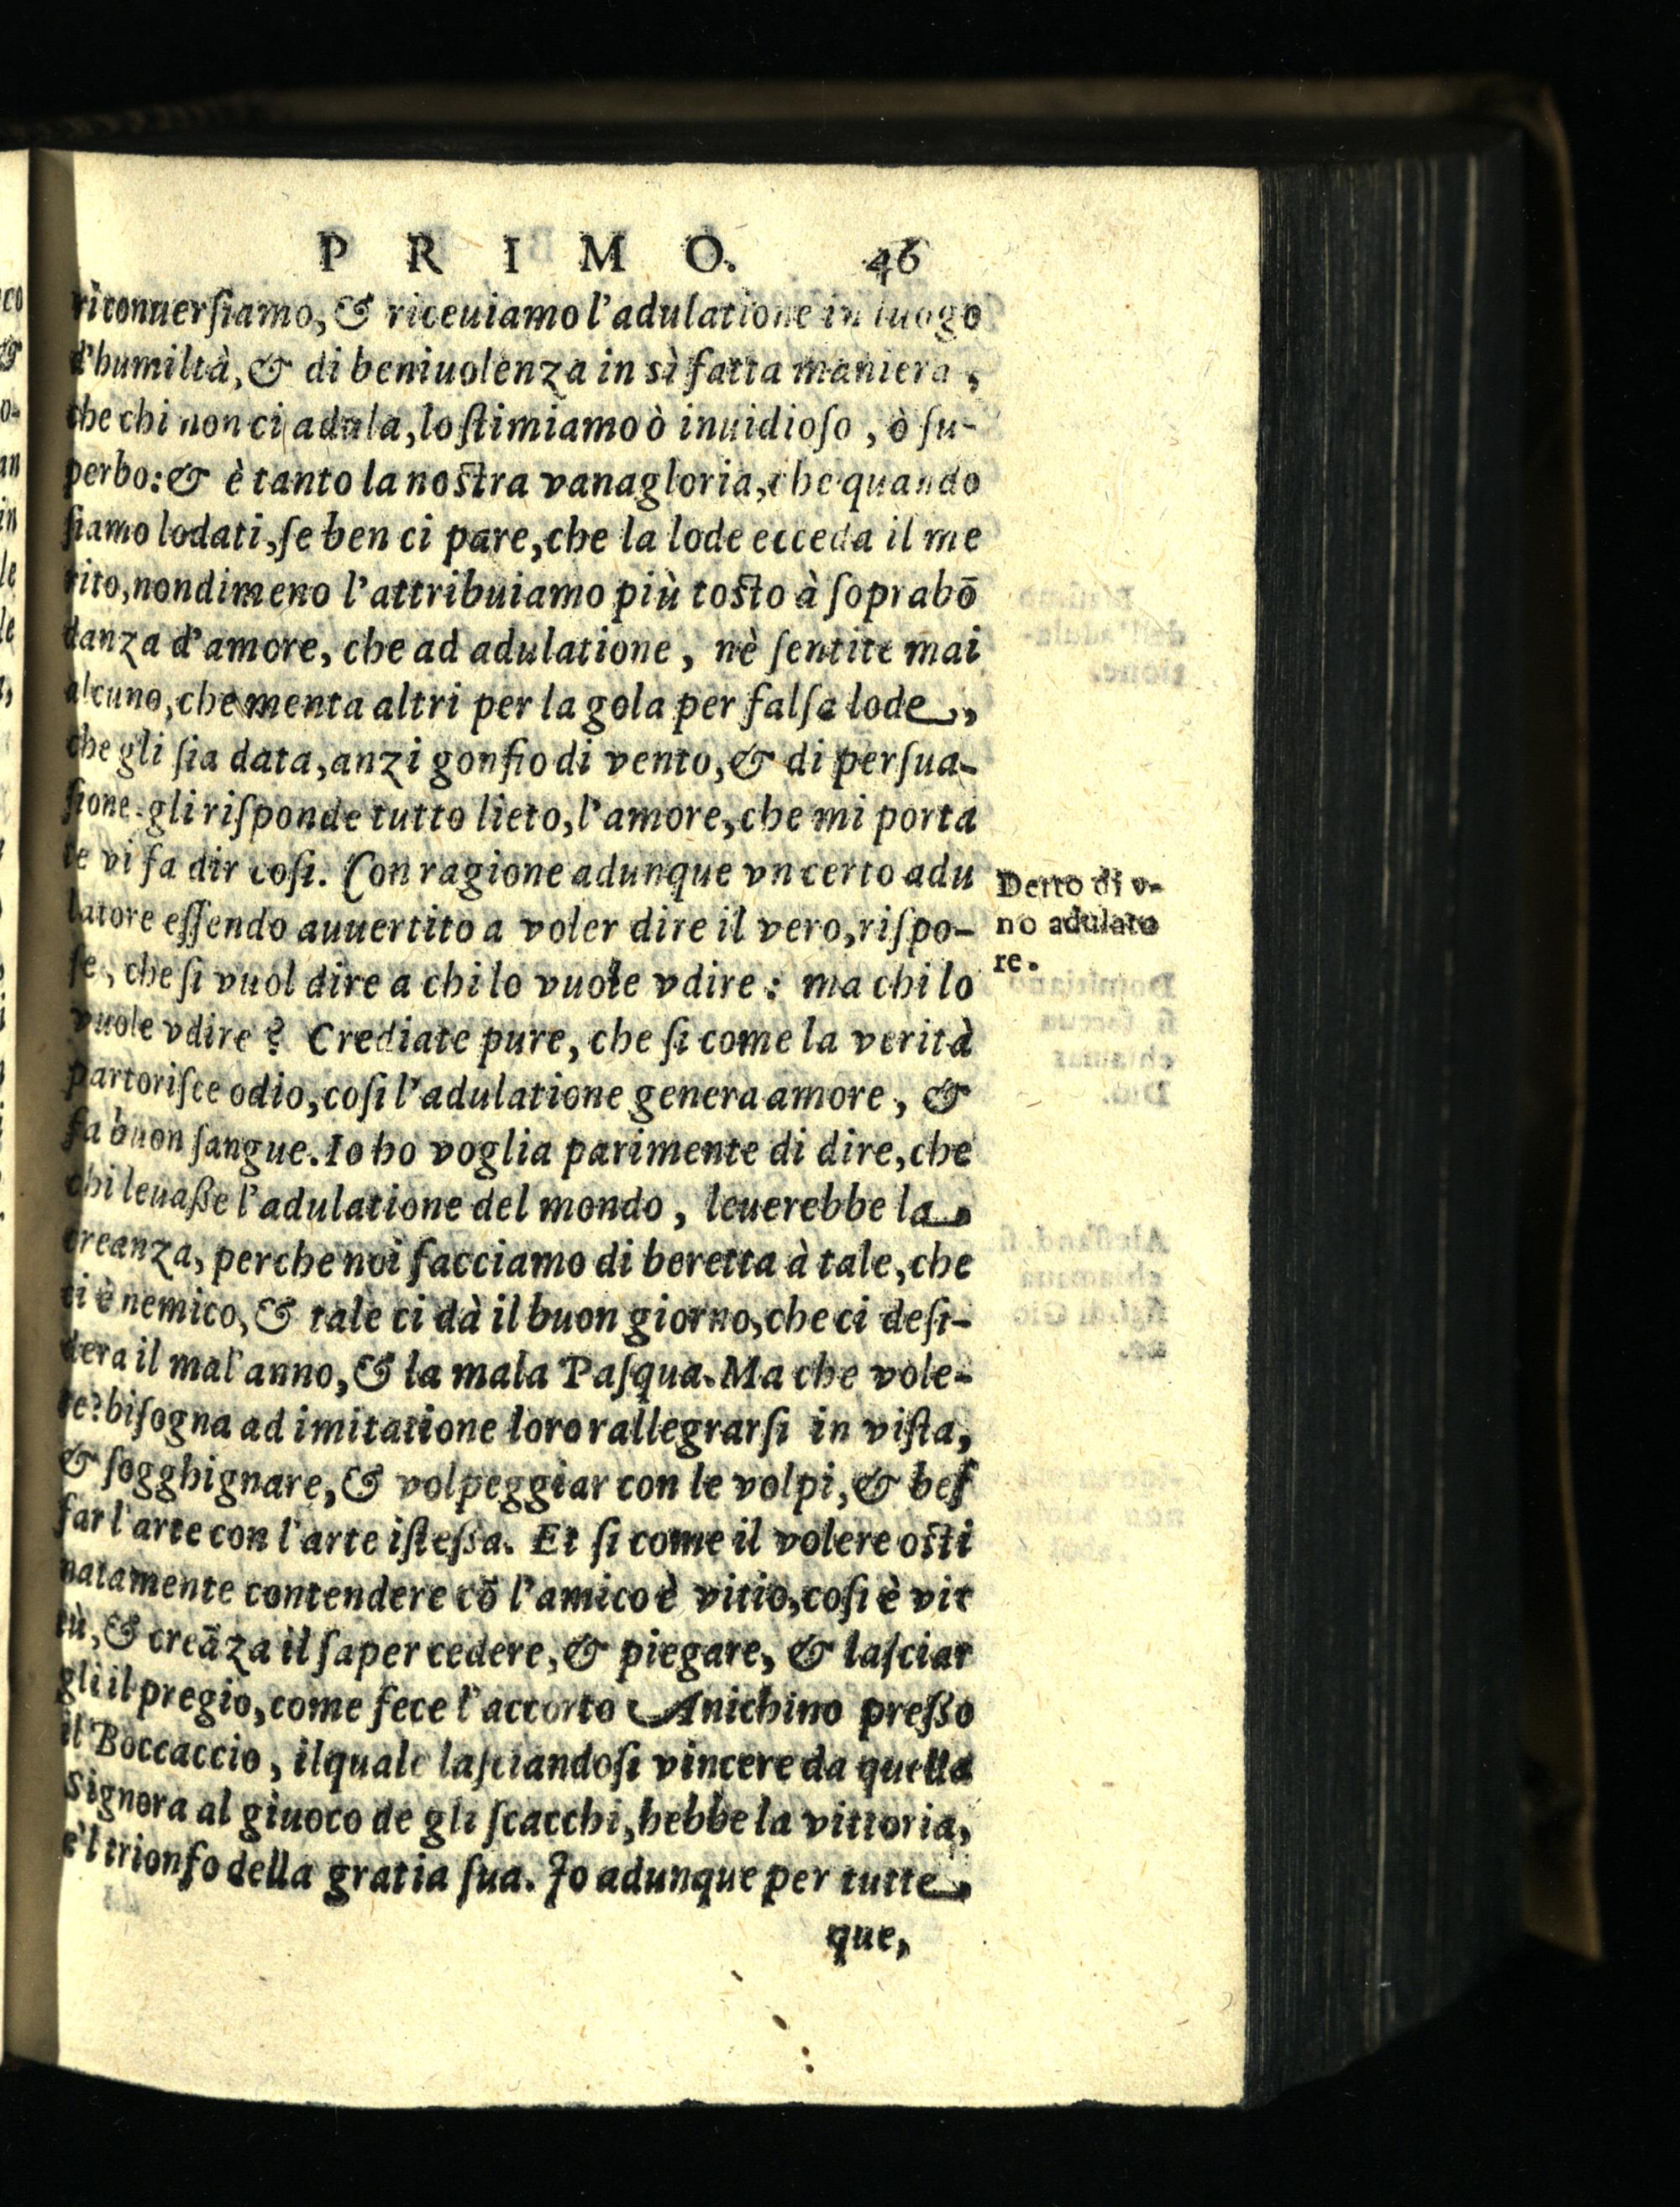 PRIMO. 46
ritonuerſiamo, & riceuiamo l'adulatione in luogo
d'humiltà, & di beniuolenza in sì fatta maniera,
che chi non ci adula, lo ſtimiamo ò inuidioſo, ò ſu-
perbo: & è tanto la noſtra vanagloria, che quando
ſiamo lodati, ſe ben ci pare, che la lode ecceda il me
rito, nondimeno l'attribuiamo più toſto à ſoprabō
danza d'amore, che ad adulatione, nè ſentite mai
alcuno, che menta altri per la gola per falſa lode,
che gli ſia data, anzi gonfio di vento, & di perſua-
ſione gli riſponde tutto lieto, l'amore, che mi porta
te vi fa dir coſi. Con ragione adunque vn certo adu
latore eſſendo auuertito a voler dire il vero, riſpo-
ſe, che ſi vuol dire a chi lo vuole vdire: ma chi lo
vuole vdire? Crediate pure, che ſi come la verità
partoriſce odio, coſi l'adulatione genera amore, &
fa buon ſangue. Io ho voglia parimente di dire, che
chi leuaße l'adulatione del mondo, leuerebbe la
creanza, perche noi facciamo di beretta à tale, che
ci è nemico, & tale ci dà il buon giorno, che ci deſi-
dera il mal'anno, & la mala Paſqua. Ma che vole-
te? biſogna ad imitatione loro rallegrarſi in viſta,
& ſogghignare, & volpeggiar con le volpi, & bef
far l'arte con l'arte iſteßa. Et ſi come il volere oſti
natamente contendere cō l'amico è vitio, coſi è vir
tù, & creāza il ſaper cedere, & piegare, & laſciar
gli il pregio, come fece l'accorto Anichino preßo
il Boccaccio, ilquale laſciandoſi vincere da quella
Signora al giuoco de gli ſcacchi, hebbe la vittoria,
e'l trionfo della gratia ſua. Io adunque per tutte
que,
Detto di v-
no adulato
re.